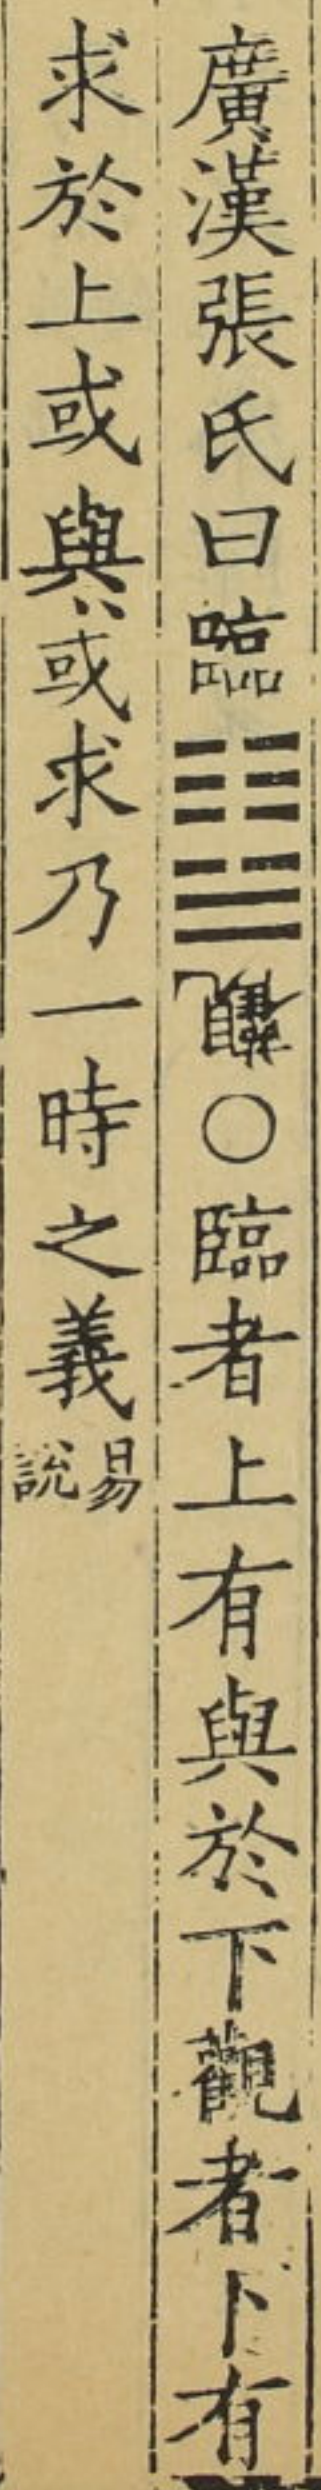 廣漢張氏曰臨䷒觀○臨者上有與於下觀者卜有
求於上或與或求乃一時之義易說